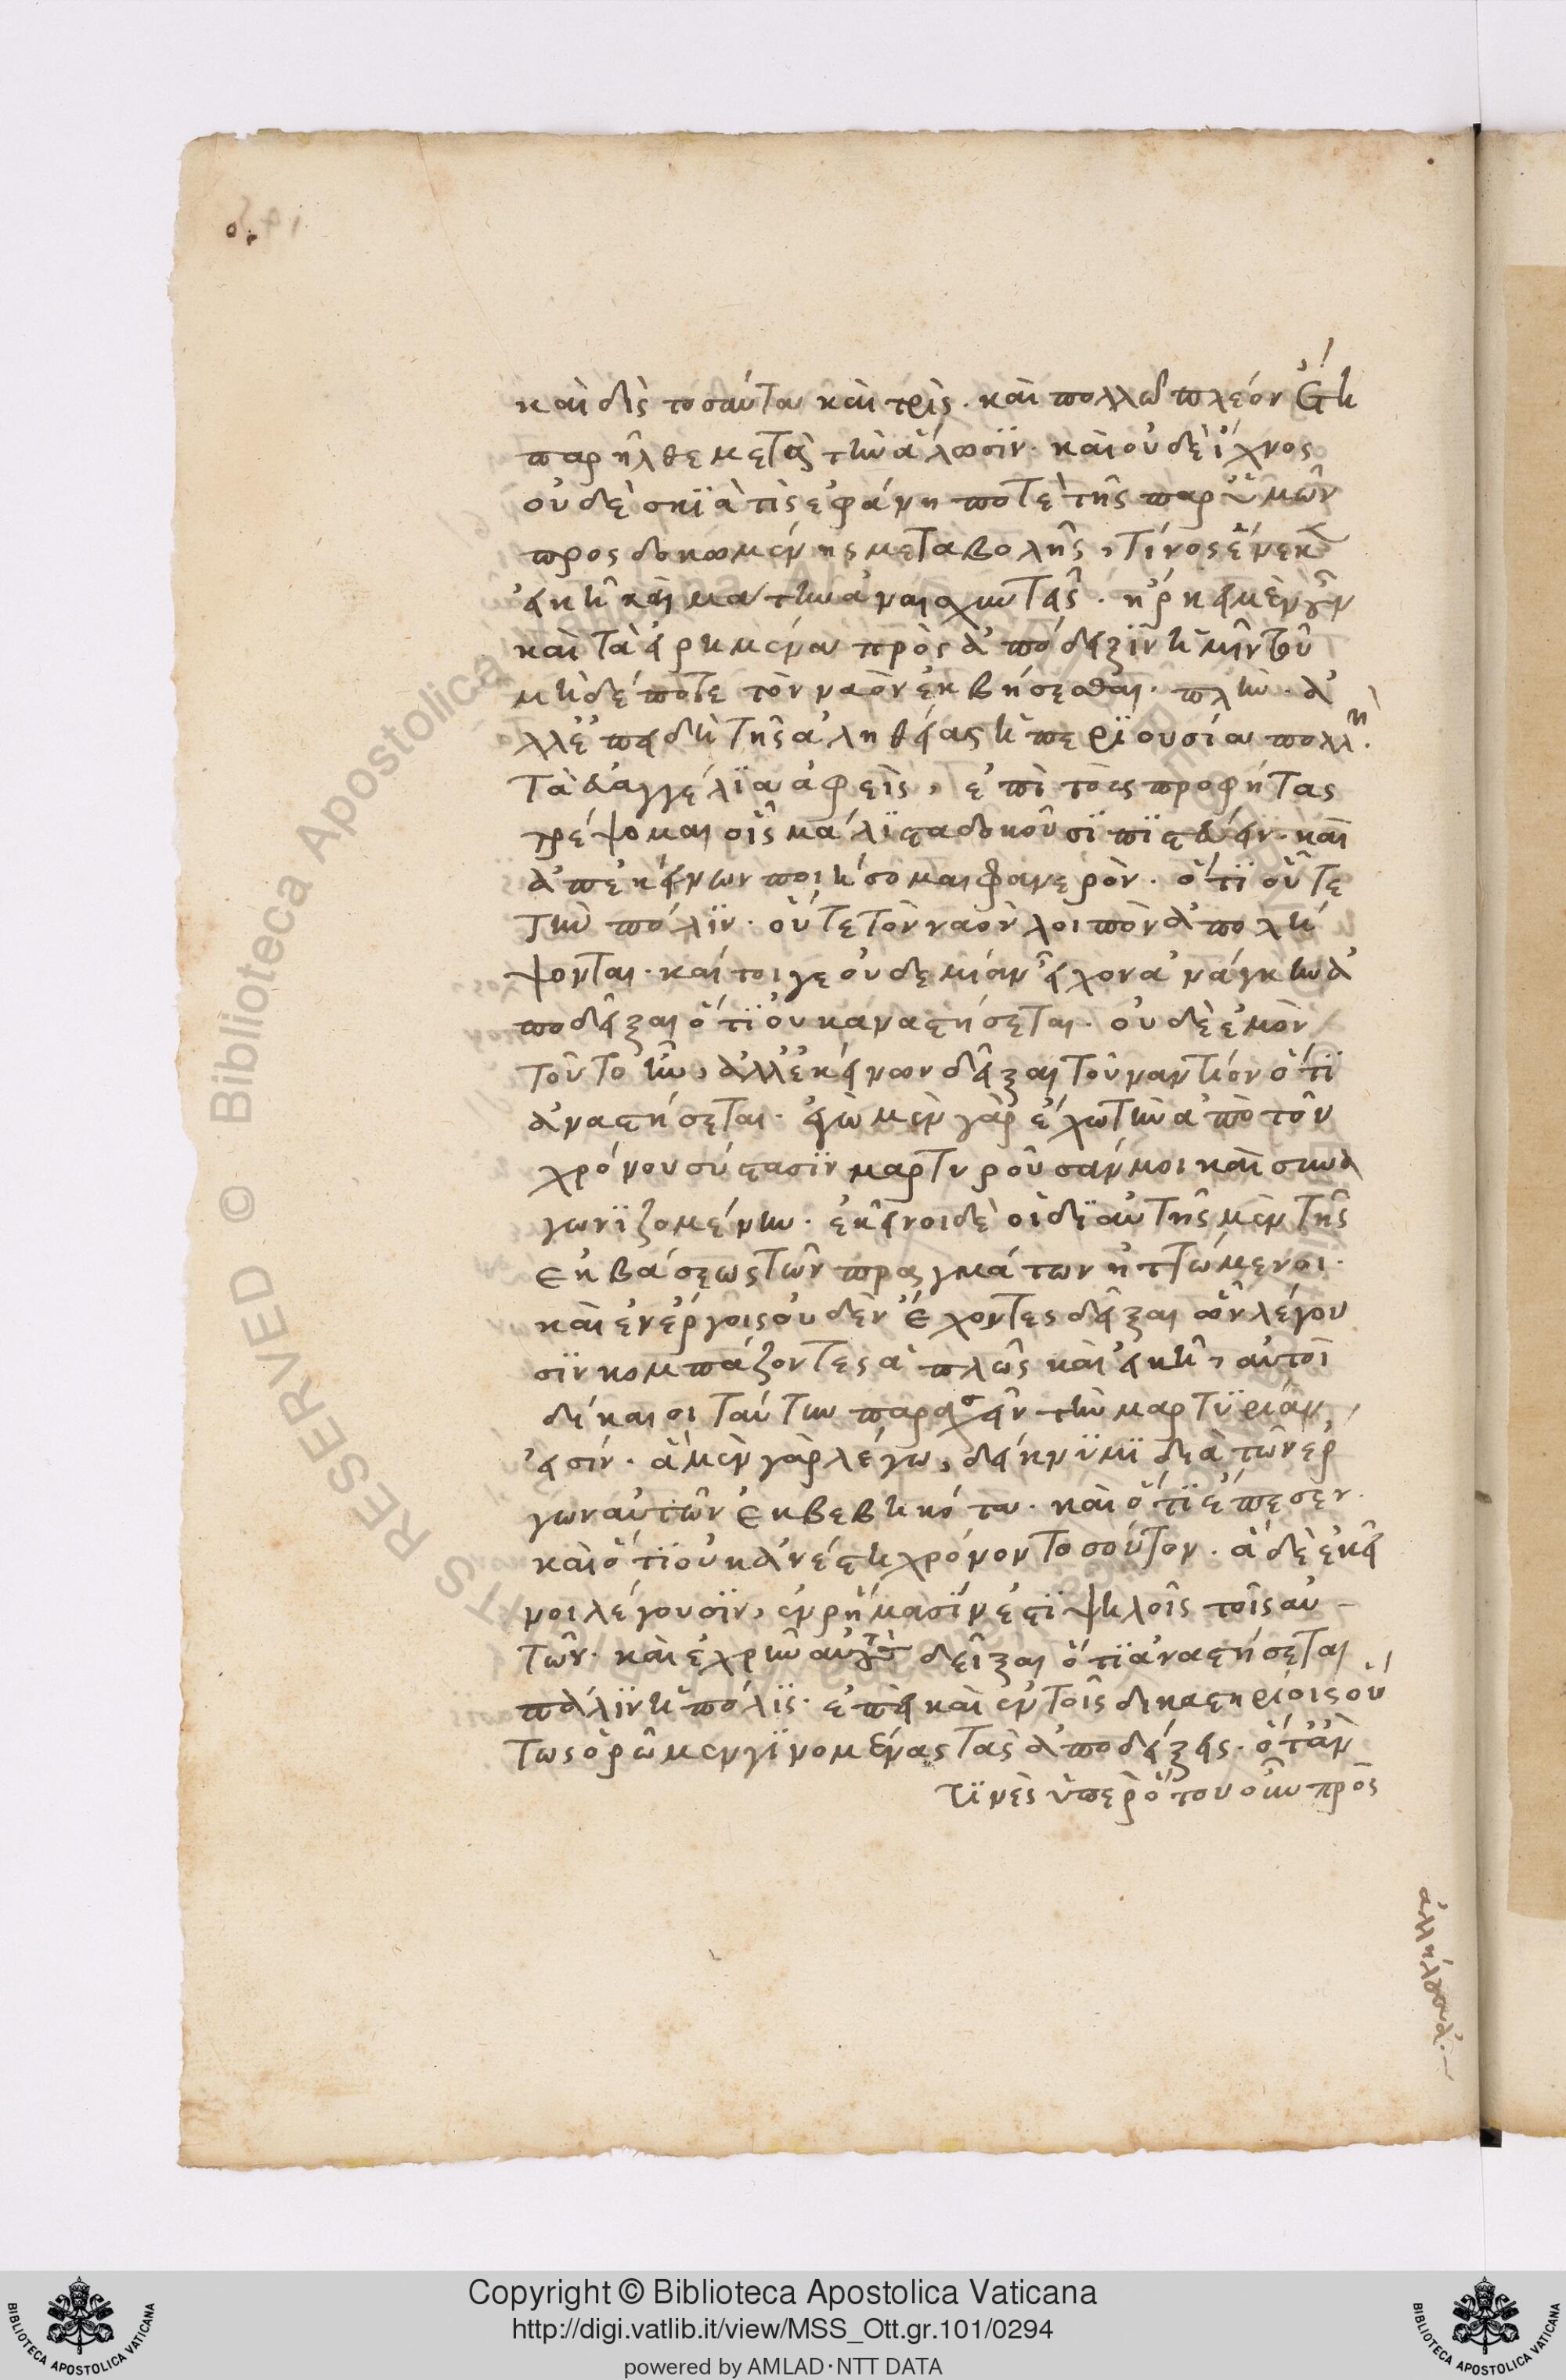 καὶ δὶς τοσαῦτα καὶ τρὶς. καὶ πολλῶ πλέον ἔτη
παρῆλθε μετὰ τὴν ἅλωσϊν. καὶ οὐδὲ ἴχνος
οὐδὲ σκϊά τὶς ἐφάνη ποτὲ τῆς παρ' ὑμῶν
προσδοκωμένης μεταβολῆς, τίνος ἕνεκεν
εἰκῆ καὶ μάτην ἀναισχυντεῖς. ἤρκει μὲν οὖν
καὶ τὰ εἰρημένα πρὸς ἀπόδειξϊν ἡμῖν τοῦ
μηδέποτε τὸν ναὸν ἐκβήσεσθαι. πλὴν. ἀ
λλ' ἐπειδὴ τῆς ἀληθείας ἡ περϊουσία πολλὴ.
τὰ εὐαγγέλϊα ἀφεὶς, ἐπὶ τοὺς προφήτας
τρέψομαι οἷς μάλϊστα δοκοῦσϊ πϊστεύειν. καὶ
ἀπ' ἐκείνων ποιήσομαι φανερὸν. ὅτϊ οὔτε
τὴν πόλϊν. οὔτε τὸν ναὸν λοιπὸν ἀπολή
ψονται. καίτοιγε οὐδεμίαν εἶχον ἀνάγκην ἀ
ποδεῖξαι ὅτϊ οὐκ ἀναστήσεται. οὐδὲ ἐμὸν
τοῦτο ἦν, ἀλλ' ἐκείνων δεῖξαι τοὐναντίον ὅτϊ
ἀναστήσεται. ἐγὼ μὲν γὰρ ἔχω τὴν ἀπὸ τοῦ
χρόνου σύστασϊν μαρτυροῦσάν μοι καὶ συνα
γωνϊζομένην. ἐκεῖνοι δὲ οἱ δϊ' αὐτῆς μὲν τῆς
ἐκβάσεως τῶν πραγμάτων ἡττώμενοι.
καὶ ἐν ἔργοις οὐδὲν ἔχοντες δεῖξαι ὧν λέγου
σϊν κομπάζοντες ἁπλῶς καὶ εἰκῆ, αὐτοὶ
δίκαιοι ταύτην παρασχεῖν τὴν μαρτϋρίαν
εἰσίν. ἃ μὲν γὰρ λέγω, δείκνϋμϊ διὰ τῶν ἔρ
γων αὐτῶν ἐκβεβηκότα. καὶ ὅτϊ ἔπεσεν.
καὶ ὅτϊ οὐκ ἀνέστη χρόνον τοσοῦτον. ἃ δὲ ἐκεῖ
νοι λέγουσϊν, ἐν ῥήμασίν ἐστϊ ψηλοῖς τοῖς αὐ
τῶν. καὶ ἐχρῆν αὐτοὺς δεῖξαι ὅτϊ ἀναστήσεται
πάλϊν ἡ πόλϊς. ἐπεὶ καὶ ἐν τοῖς δικαστηρίοις οὕ
τως ὁρῶμεν γϊνομένας τὰς ἀποδείξεις. ὅταν
τϊνὲς ὑπὲρ ὅτου οὖν πρὸς
ἀλλήλους ἀ.